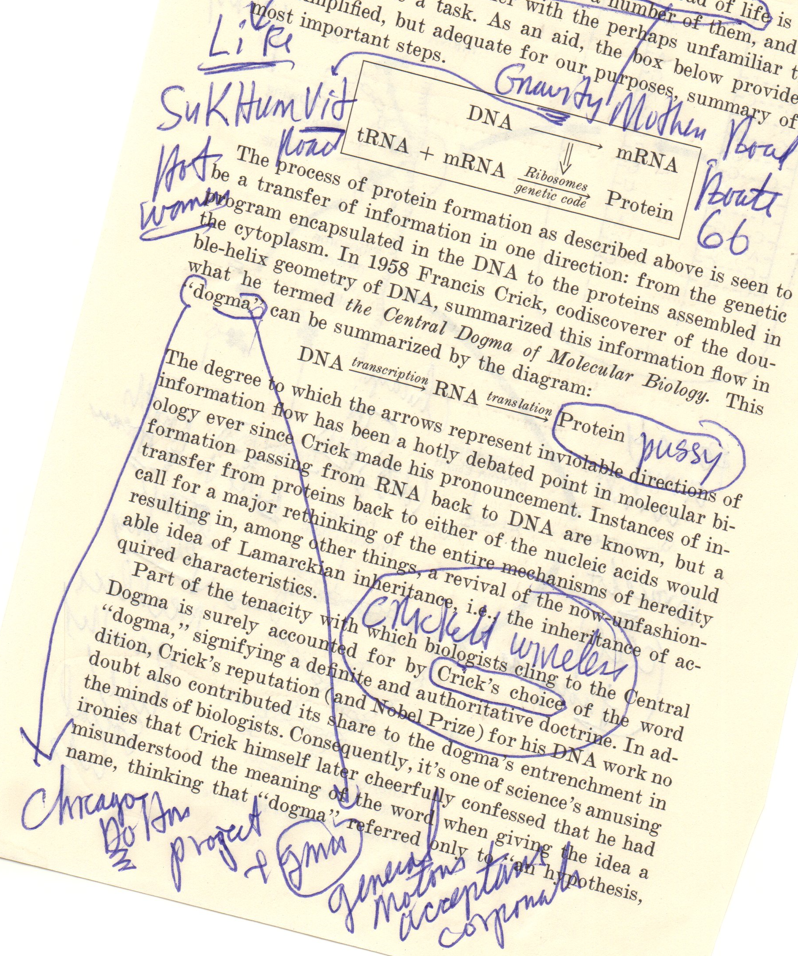 ad of life is
a number of them, and
a task. As an aid, the box below provide
with the perhaps unfamiliar t
mplified, but adequate for our purposes, summary of
most important steps.
Like
SuKHumVit
Road
Hot
woman
Gravity Mother Road
Route
66
DNA ⟶ mRNA
tRNA + mRNA Ribosomes genetic code Protein
The process of protein formation as described above is seen to
be a transfer of information in one direction: from the genetic
program encapsulated in the DNA to the proteins assembled in
the cytoplasm. In 1958 Francis Crick, codiscoverer of the dou-
ble-helix geometry of DNA, summarized this information flow in
what he termed the Central Dogma of Molecular Biology. This
"dogma" can be summarized by the diagram:
DNA transcription RNA translation Protein
pussy
The degree to which the arrows represent inviolable directions of
information flow has been a hotly debated point in molecular bi-
ology ever since Crick made his pronouncement. Instances of in-
formation passing from RNA back to DNA are known, but a
transfer from proteins back to either of the nucleic acids would
call for a major rethinking of the entire mechanisms of heredity
resulting in, among other things, a revival of the now-unfashion-
able idea of Lamarckian inheritance, i.e., the inheritance of ac-
quired characteristics.
crickett wireless
Part of the tenacity with which biologists cling to the Central
Dogma is surely accounted for by Crick's choice of the word
"dogma," signifying a definite and authoritative doctrine. In ad-
dition, Crick's reputation (and Nobel Prize) for his DNA work no
doubt also contributed its share to the dogma's entrenchment in
the minds of biologists. Consequently, it's one of science's amusing
ironies that Crick himself later cheerfully confessed that he had
misunderstood the meaning of the word when giving the idea a
name, thinking that "dogma" referred only to "an hypothesis,
Chicago
project
+ gmac
general
motors
acceptance
corporate